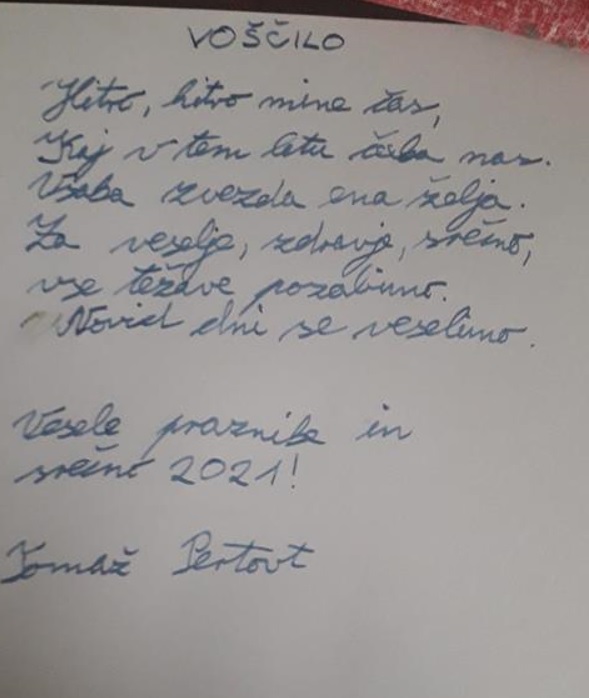 VOŠČILO
Hitro, hitro mine čas,
Kaj v tem letu čaka nas.
Vsaka zvezda ena želja.
Za veselje, zdravje, srečno,
vse težave pozabimo.
Novih dni se veselimo.
Vesele praznike in
srečno 2021!
Tomaž Pertovt